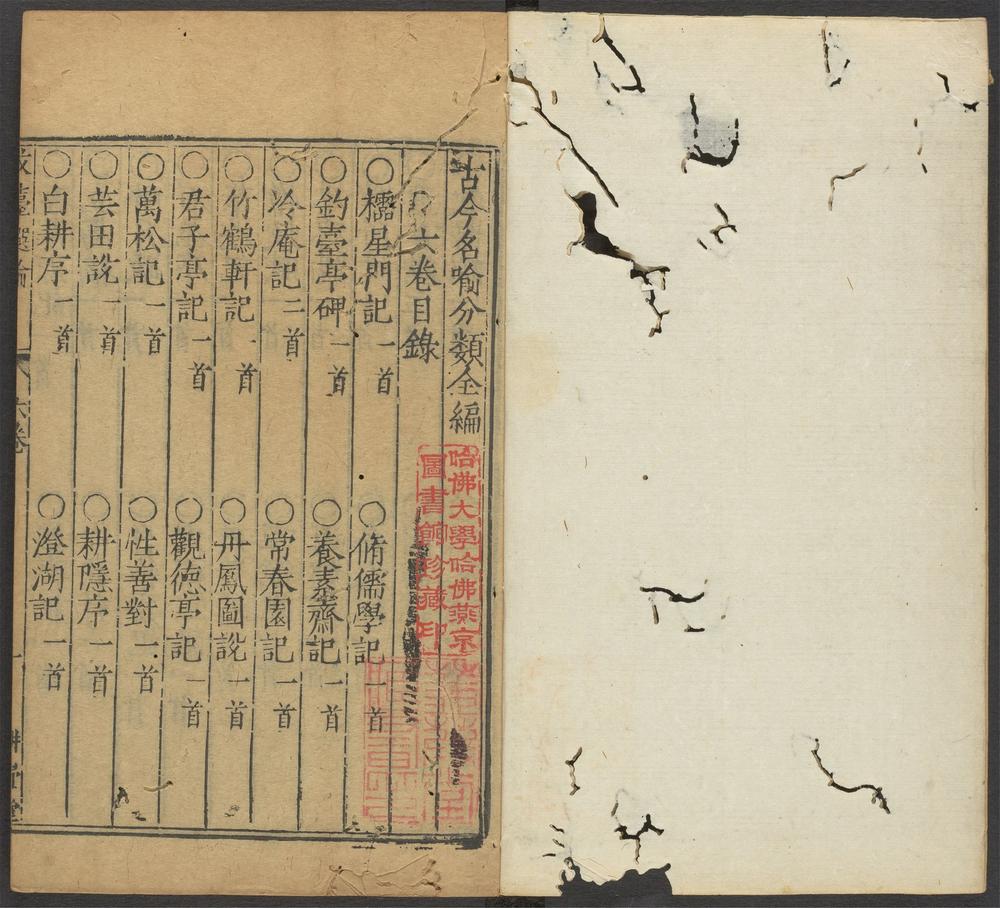 古今名喻分類全編
六卷目錄
○櫺星門記一首　○脩儒學記一首
○釣臺亭碑一首　○養素齋記一首
○冷庵記二首　○常春園記一首
○竹鶴軒記一首　○丹鳳圖説一首
○君子亭記一首　○觀德亭記一首
○萬松記一首　○性善對一首
○芸田説一首　○耕隱序一首
○白耕序一首　○澄湖記一首
六卷
一
哈佛大學哈佛燕京
圖書館珍藏印